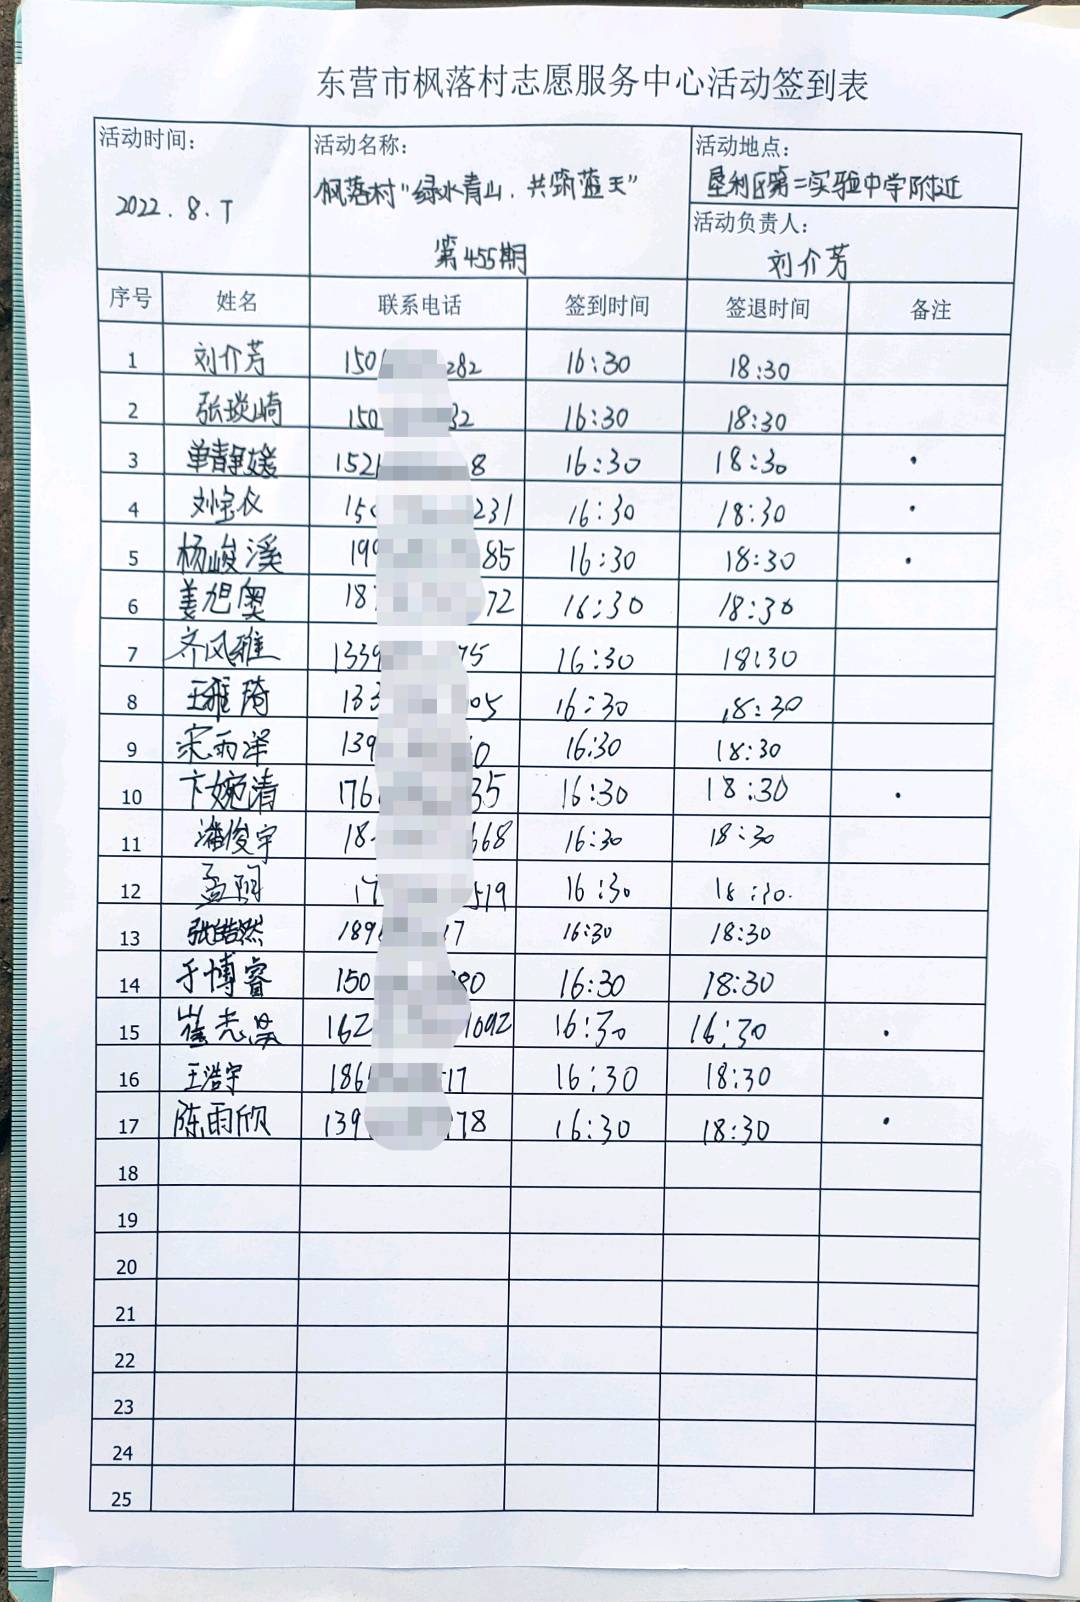 东营市枫落村志愿服务中心活动签到表
活动时间: 活动名称: 活动地点:
2022.8.7 枫落村“绿水青山.共筑蓝天” 垦利区第二实验中学附近
第455期
活动负责人:
刘介芳
序号 姓名 联系电话 签到时间 签退时间 备注
1 刘介芳 150 282 16:30 18:30
2 张琰崎 150 32 16:30 18:30
3 单静媛 152 8 16:30 18:30 ·
4 刘宝仪 15 231 16:30 18:30 ·
5 杨峻溪 199 85 16:30 18:30 ·
6 姜旭奥 18 72 16:30 18:30
7 齐风雅 1339 75 16:30 18:30
8 王雅琦 133 05 16:30 18:30
9 宋雨泽 139 0 16:30 18:30
10 卞婉清 176 35 16:30 18:30 ·
11 潘俊宇 18 668 16:30 18:30
12 孟阴 17 519 16:30 18:30.
13 张皓然 189 17 16:30 18:30
14 于博睿 150 80 16:30 18:30
15 崔志昊 162 1092 16:30 16:30 ·
16 王浩宇 186 17 16:30 18:30
17 陈雨欣 139 178 16:30 18:30 ·
18
19
20
21
22
23
24
25